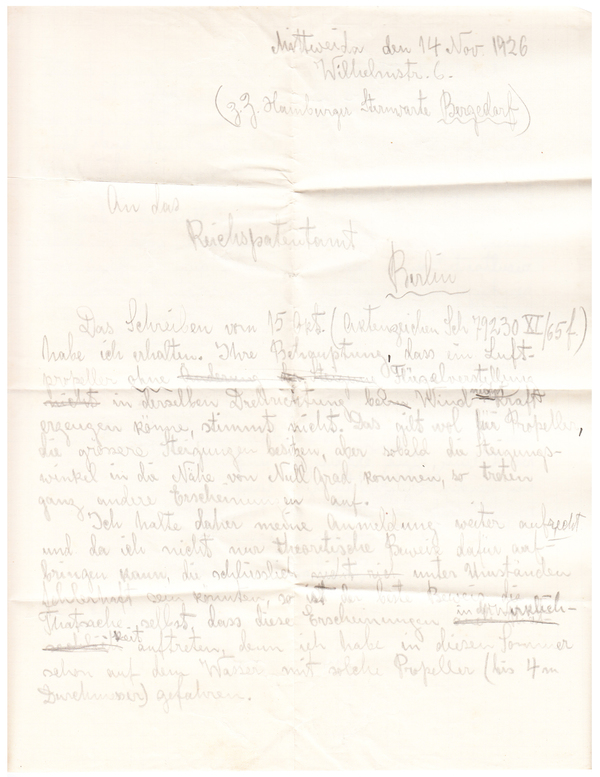 Mittweida den 14 Nov. 1926
Wilhelmstr. 6.
(z Z. Hamburger Sternwarte Bergedorf)
An das
Reichspatentamt
Berlin
Das Schreiben vom 15 Okt. (Aktenzeichen Sch 79230 XI/65f)
habe ich erhalten. Ihre Behauptung, dass ein Luft-
propeller ohne Flügelverstellung
in derselben Drehrichtung Wind Kraft
erzeugen könne, stimmt nicht. Das gilt wol für Propeller,
die grössere Steigungen besitzen, aber sobald die Steigungs-
winkel in die Nähe von Null Grad kommen, so treten
ganz andere auf.
Ich halte daher meine Anmeldung weiter aufrecht
und da ich nicht nur theoretische Beweise dafür auf-
bringen kann, die schliesslich unter Umständen
sein könnten, so ist der beste Beweis die
Thatsache selbst, dass diese Erscheinungen in der Wirklich-
keit auftreten, denn ich habe in diesen Sommer
schon auf dem Wasser mit solche Propeller (bis 4 m
Durchmesser) gefahren.